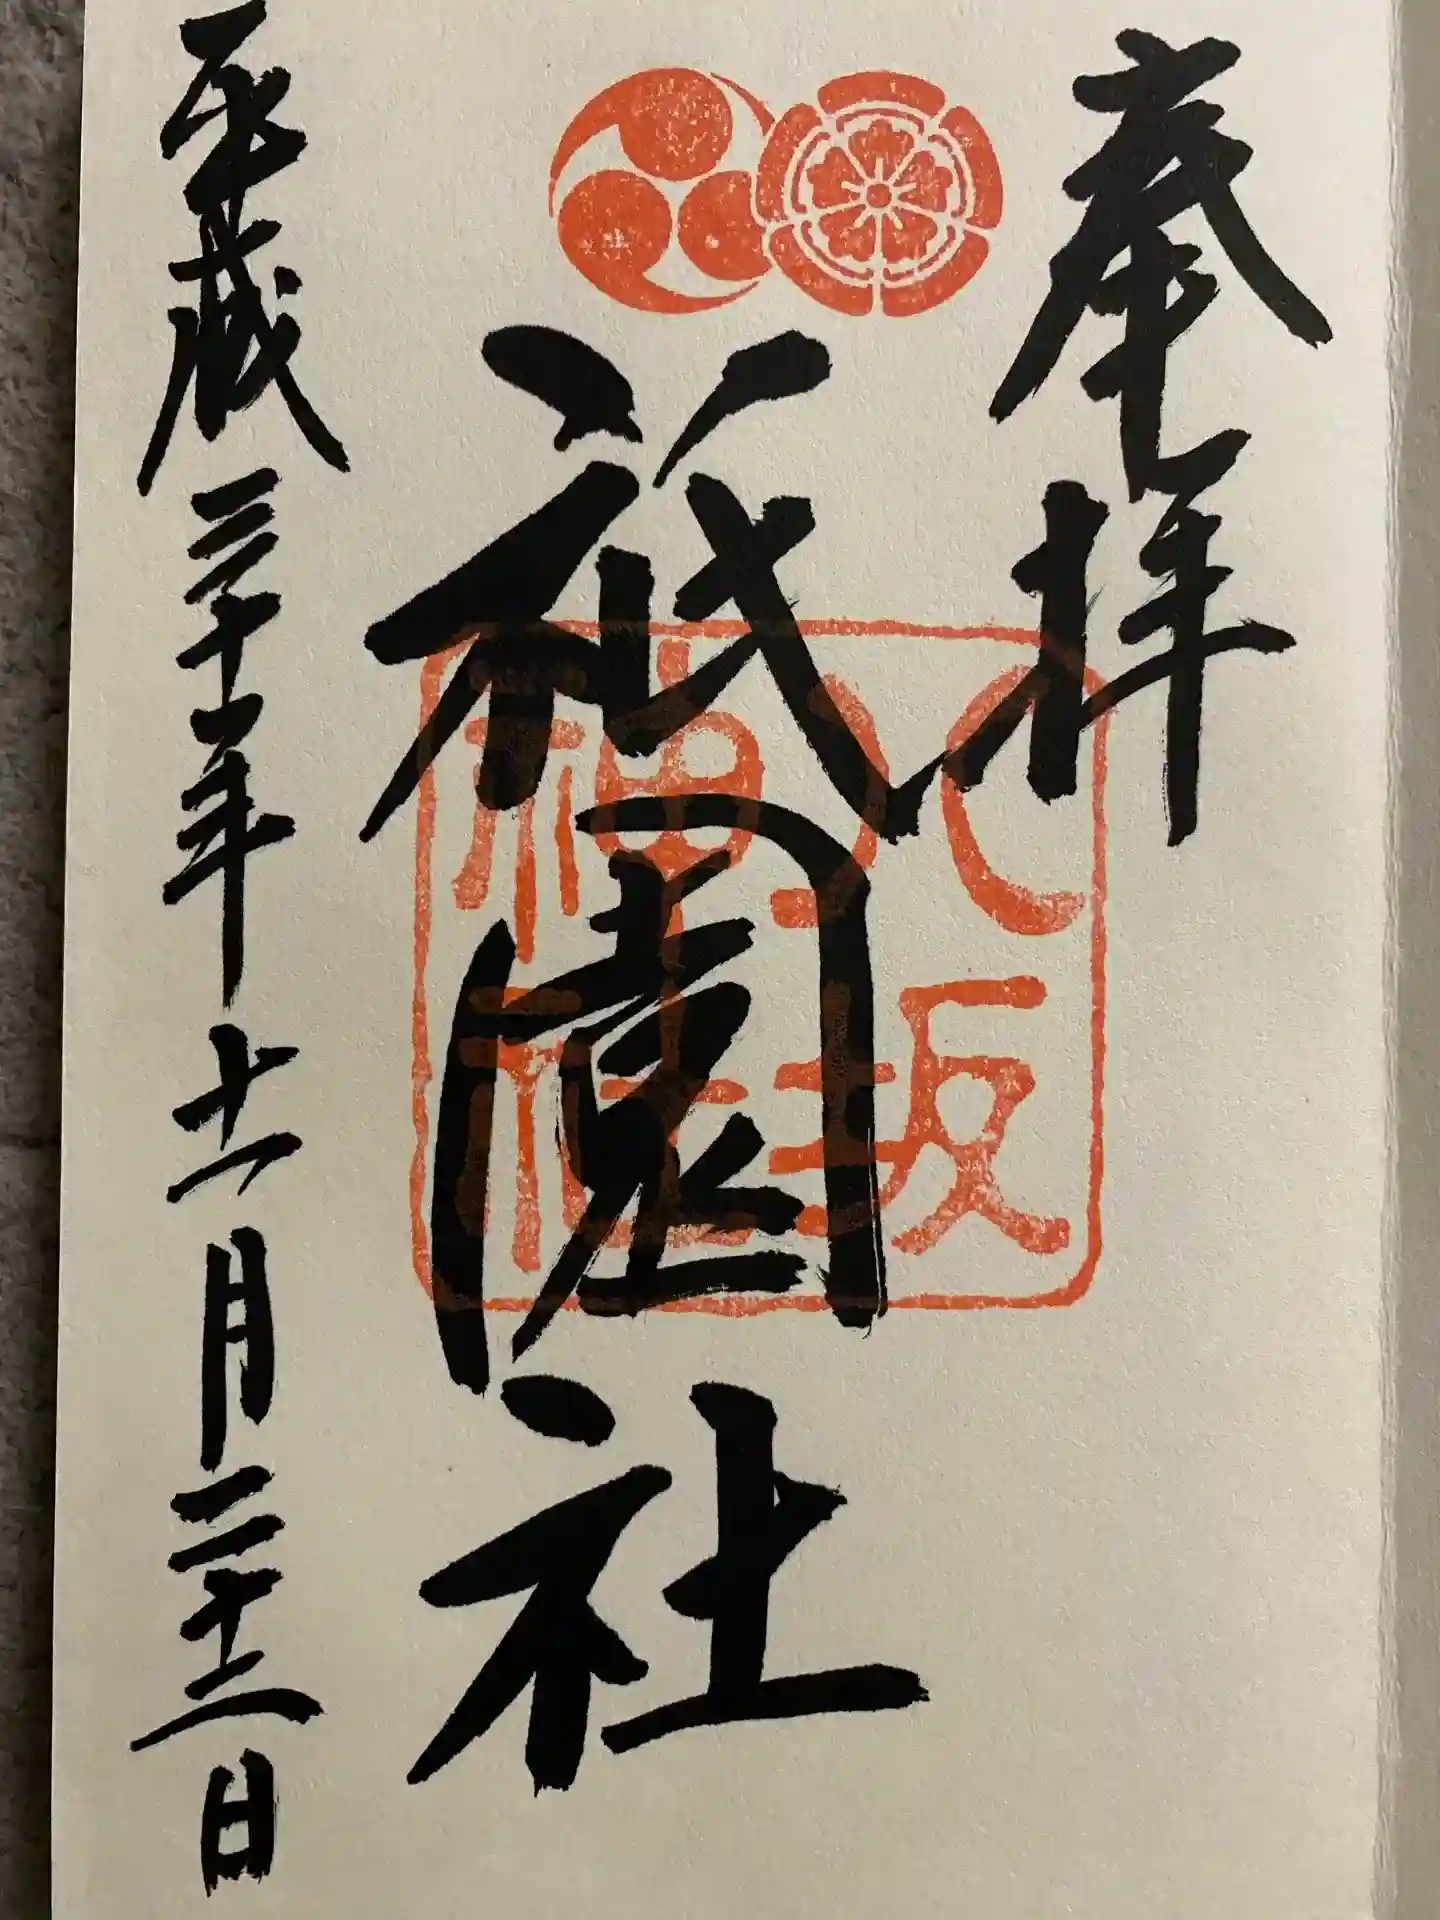 奉拝
祇園社
八坂
神社
平成三十年十一月二十二日